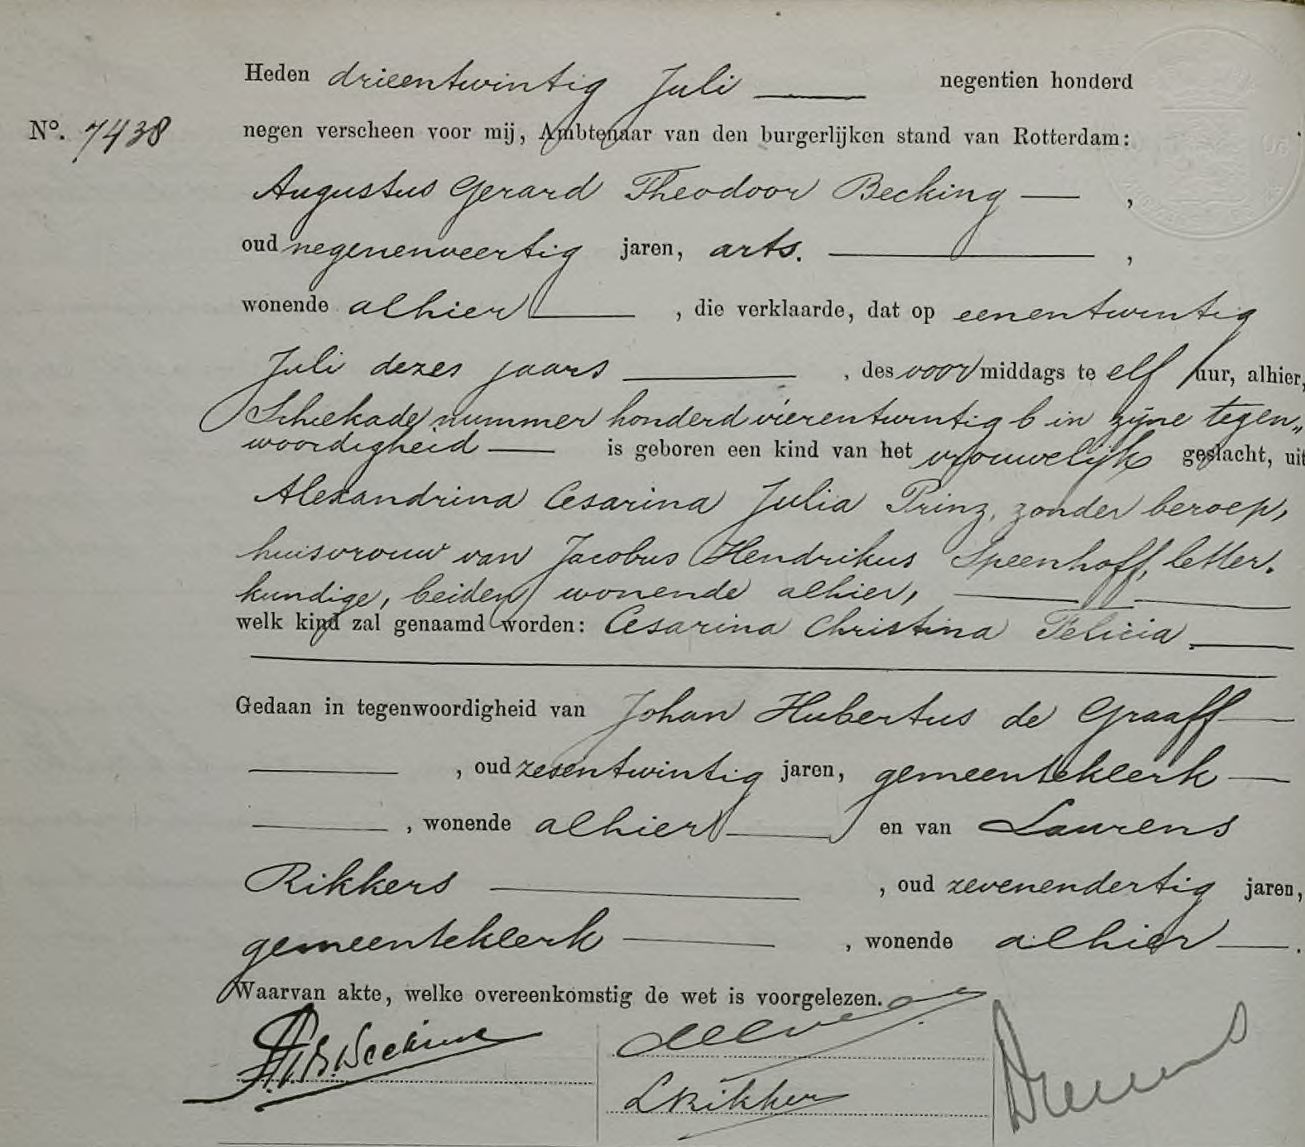 Heden drieentwintig Juli negentien honderd
No. 7438 negen verscheen voor mij, Ambtenaar van den burgerlijken stand van Rotterdam:
Augustus Gerard Theodoor Becking,
oud negenenveertig jaren, arts.,
wonende alhier, die verklaarde, dat op eenentwintig
Juli dezes jaars, des voormiddags te elf uur, alhier,
Schiekade nummer honderd vierentwintig b in zijne tegen„
woordigheid is geboren een kind van het vrouwelijk geslacht, uit
Alexandrina Cesarina Julia Prinz, zonder beroep,
huisvrouw van Jacobus Hendrikus Speenhoff, letter.
kundige, beiden wonende alhier,
welk kind zal genaamd worden: Cesarina Christina Felicia.
Gedaan in tegenwoordigheid van Johan Hubertus de Graaff
, oud zesentwintig jaren, gemeenteklerk
, wonende alhier en van Laurens
Rikkers, oud zevenendertig jaren,
gemeenteklerk, wonende alhier.
Waarvan akte, welke overeenkomstig de wet is voorgelezen.
Becking
LRikkers